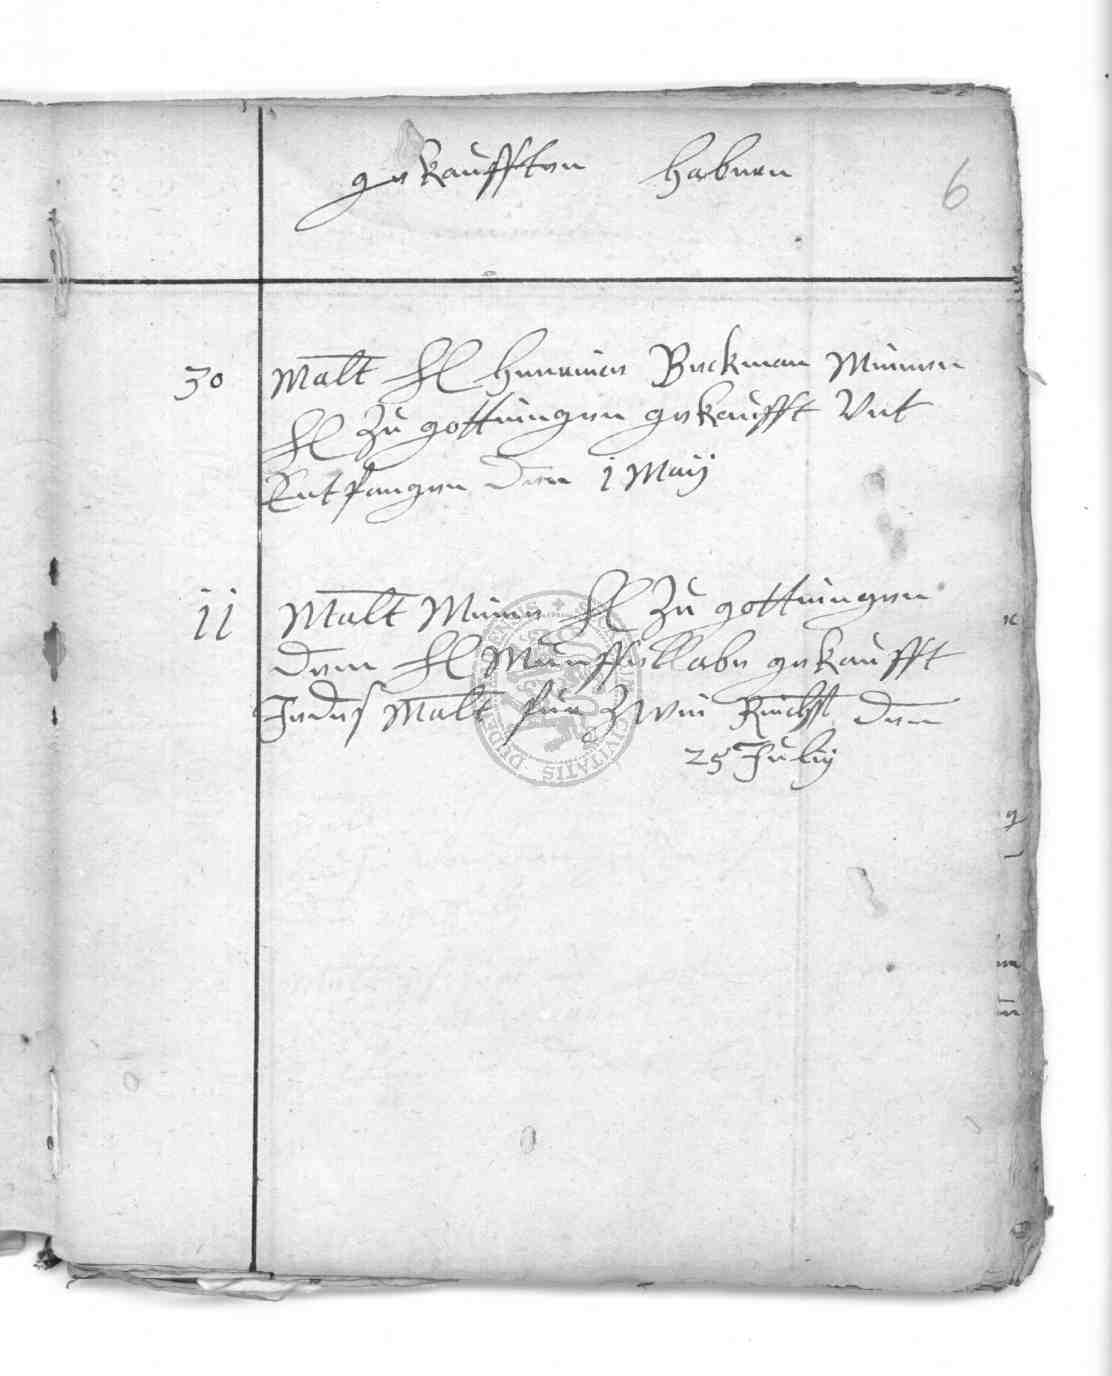 gekaufften habern
6
30 Malt H Henrinus Beckman Meinen
H Zu gottingen gekaufft Vnt
Entfangen Den 1 Maij
11 Malt Meine H Zu gottingen
Dem H gekaufft
Jedes Malt für Zwei Reichst Den
25 Julij
CIVITATIS